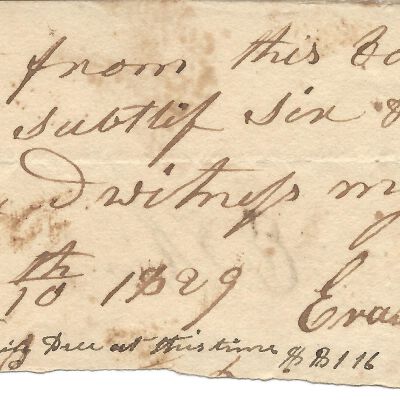 from this
subtlif six &
witness m
10th 1829 Evan
Dec at this time